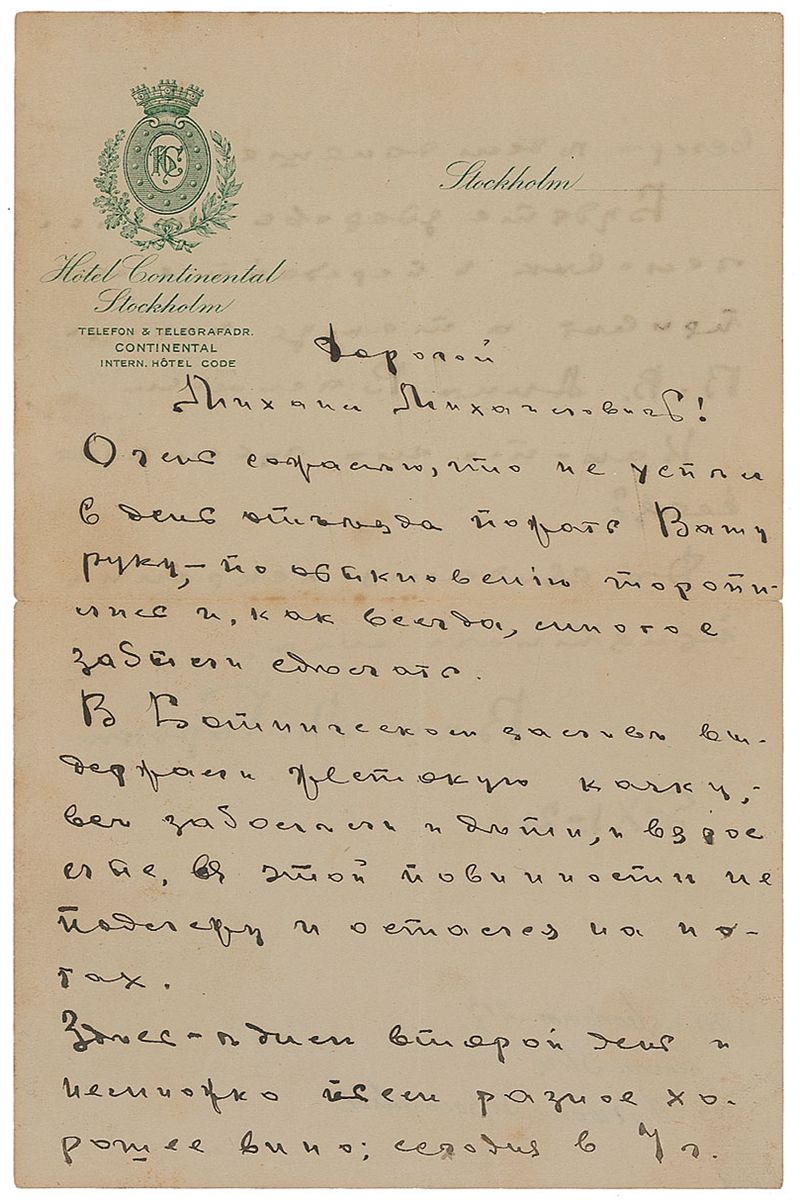 HC
Stockholm
Hôtel Continental
Stockholm
TELEFON & TELEGRAFADR.
CONTINENTAL
INTERN. HÔTEL CODE
Дорогой
Михаил Михайлович!
Очень сожалею, что не успел
в день отъезда пожать Вашу
руку, – по обыкновенію торопи-
лись и, как всегда, многое
забыли сделать.
В Ботническом заливе вы-
держали жестокую качку, –
все заболели и дѣти, и взрос
лые, я этой повинности не
подлежу и остался на но-
гах.
Здѣсь – ѣдим второй день и
немножко пьем разное хо-
рошее вино; сегодня в 7 ч.